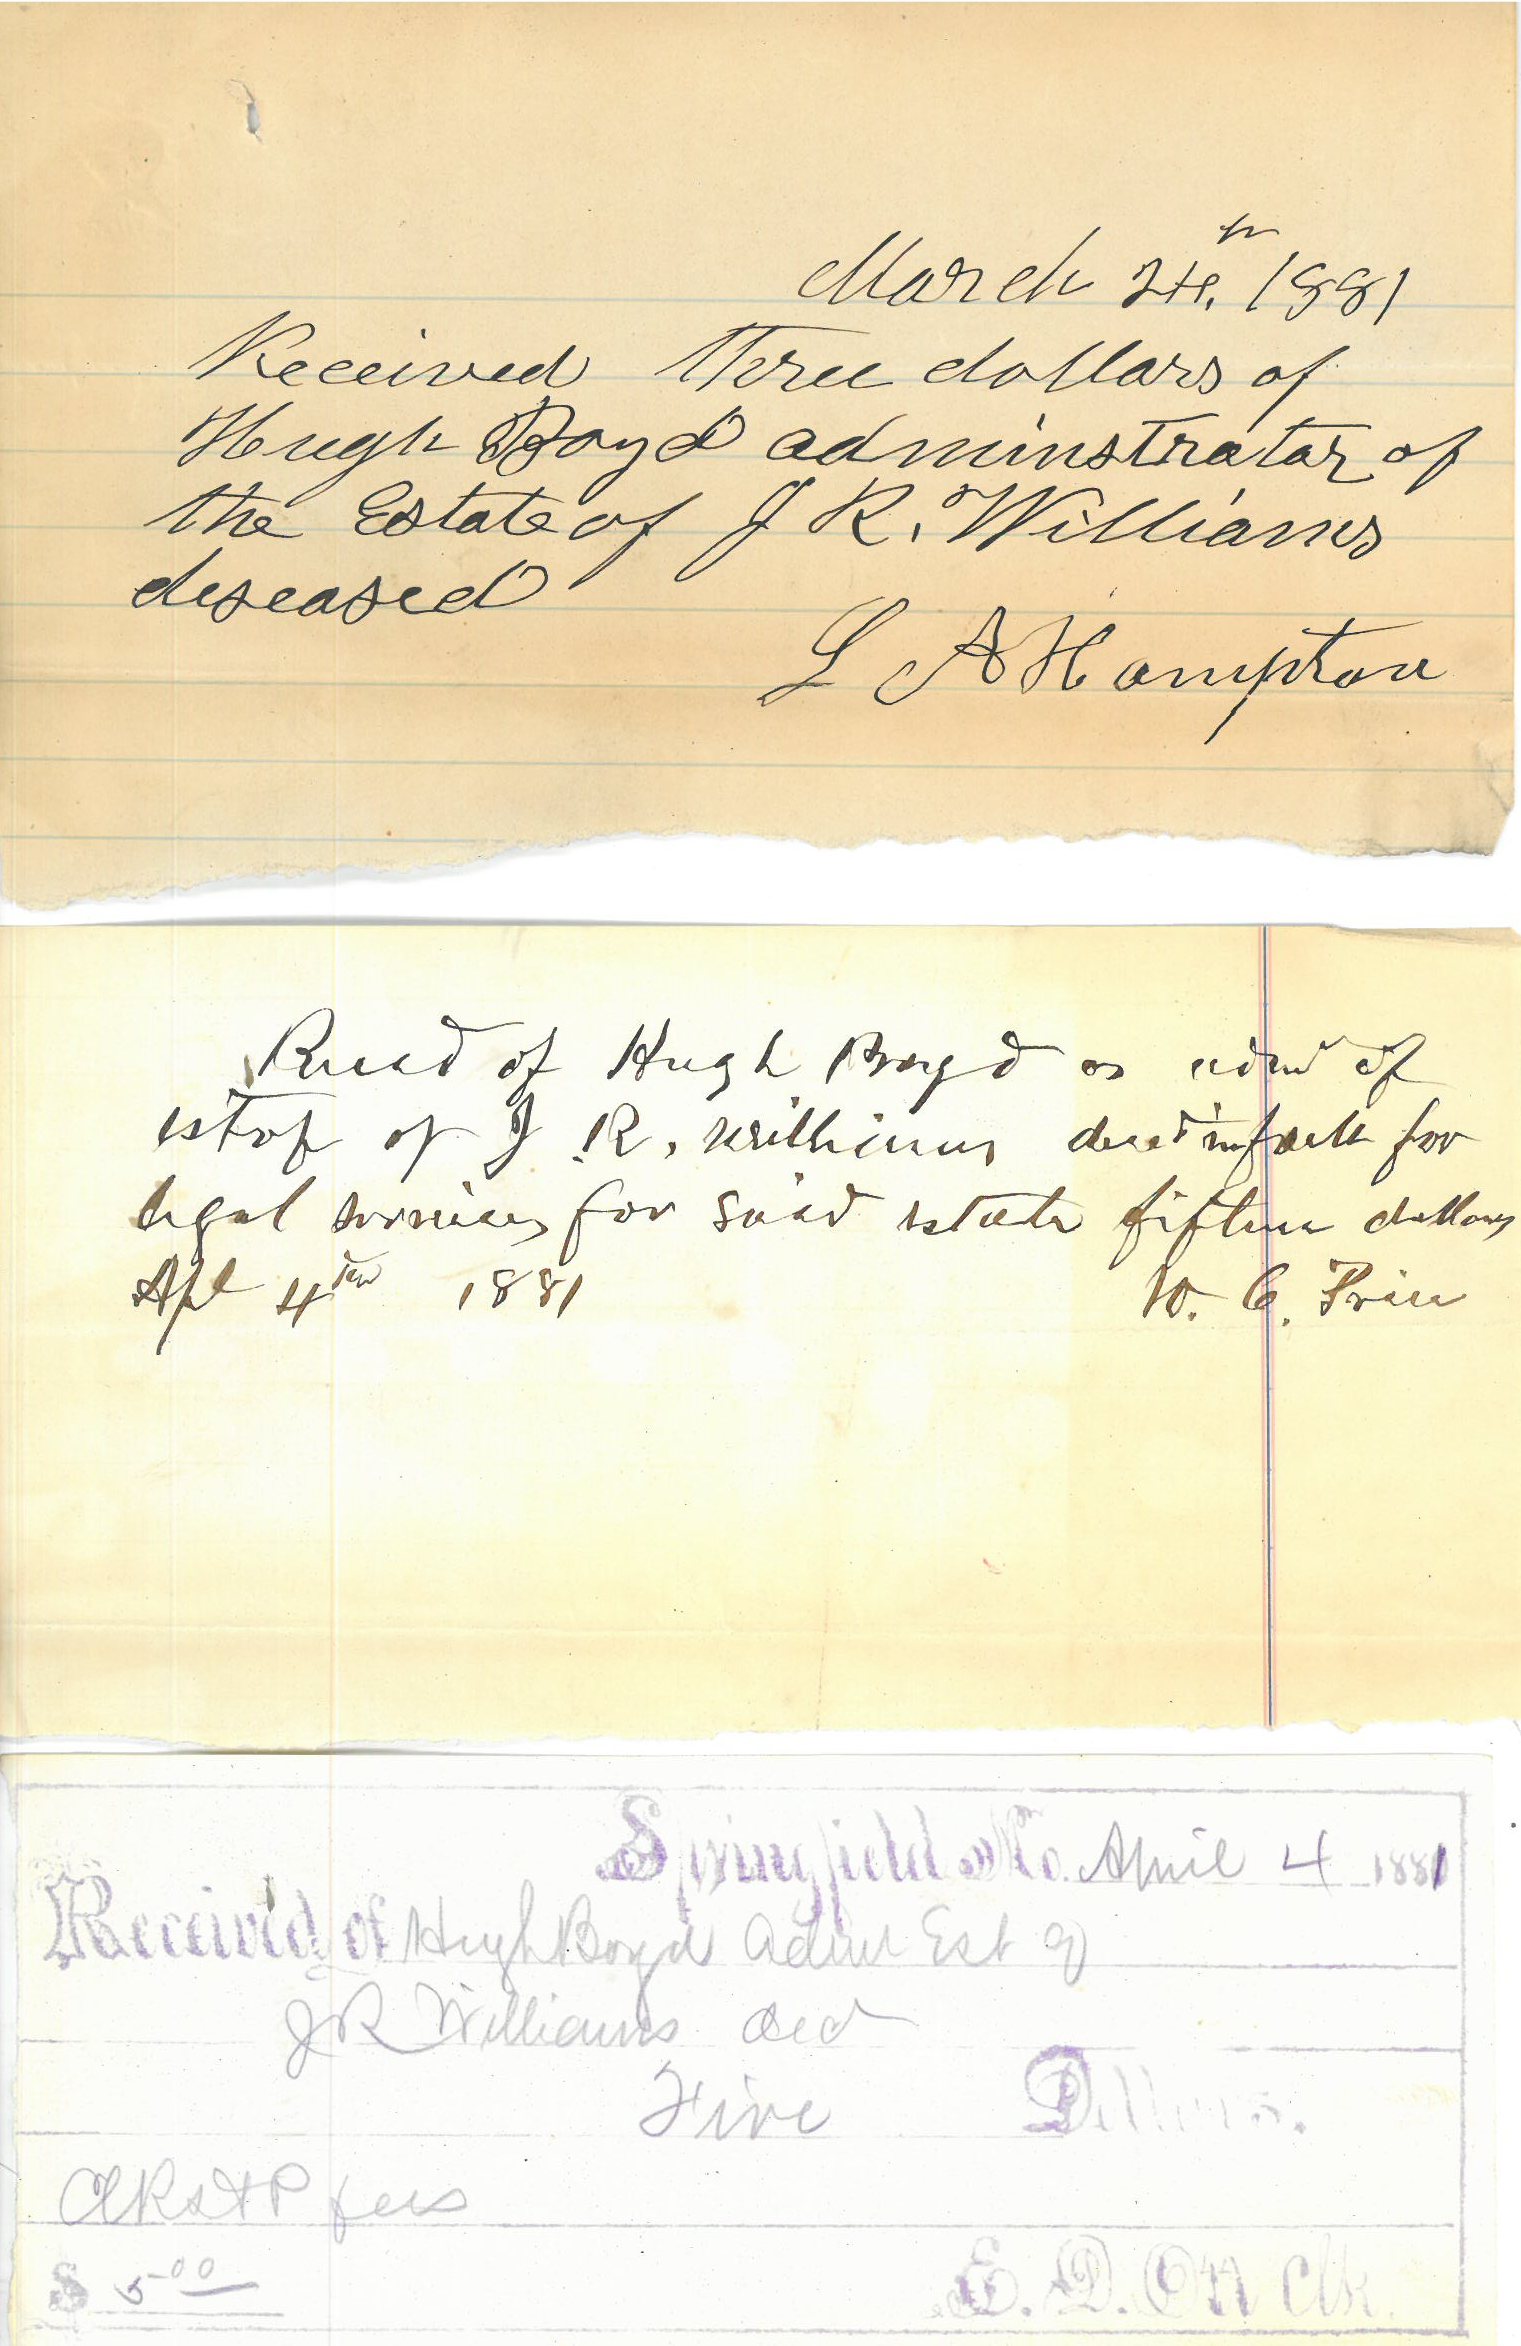 March 24th, 1881
Received three dollars of
Hugh Boyd adminstrator of
the Estate of J R. Williams
deseased
L A Hampton
Recd of Hugh Boyd as adm of
est of J. R. Williams decd in full for
legal services for said estate fifteen dollars
Apl 4th 1881 W. C. Price
Springfield Mo. April 4 1881
Received of Hugh Boyd Adm Est of
J R Williams decd
Five Dollars.
fees
$ 5 00 E. D. Ott Clk.